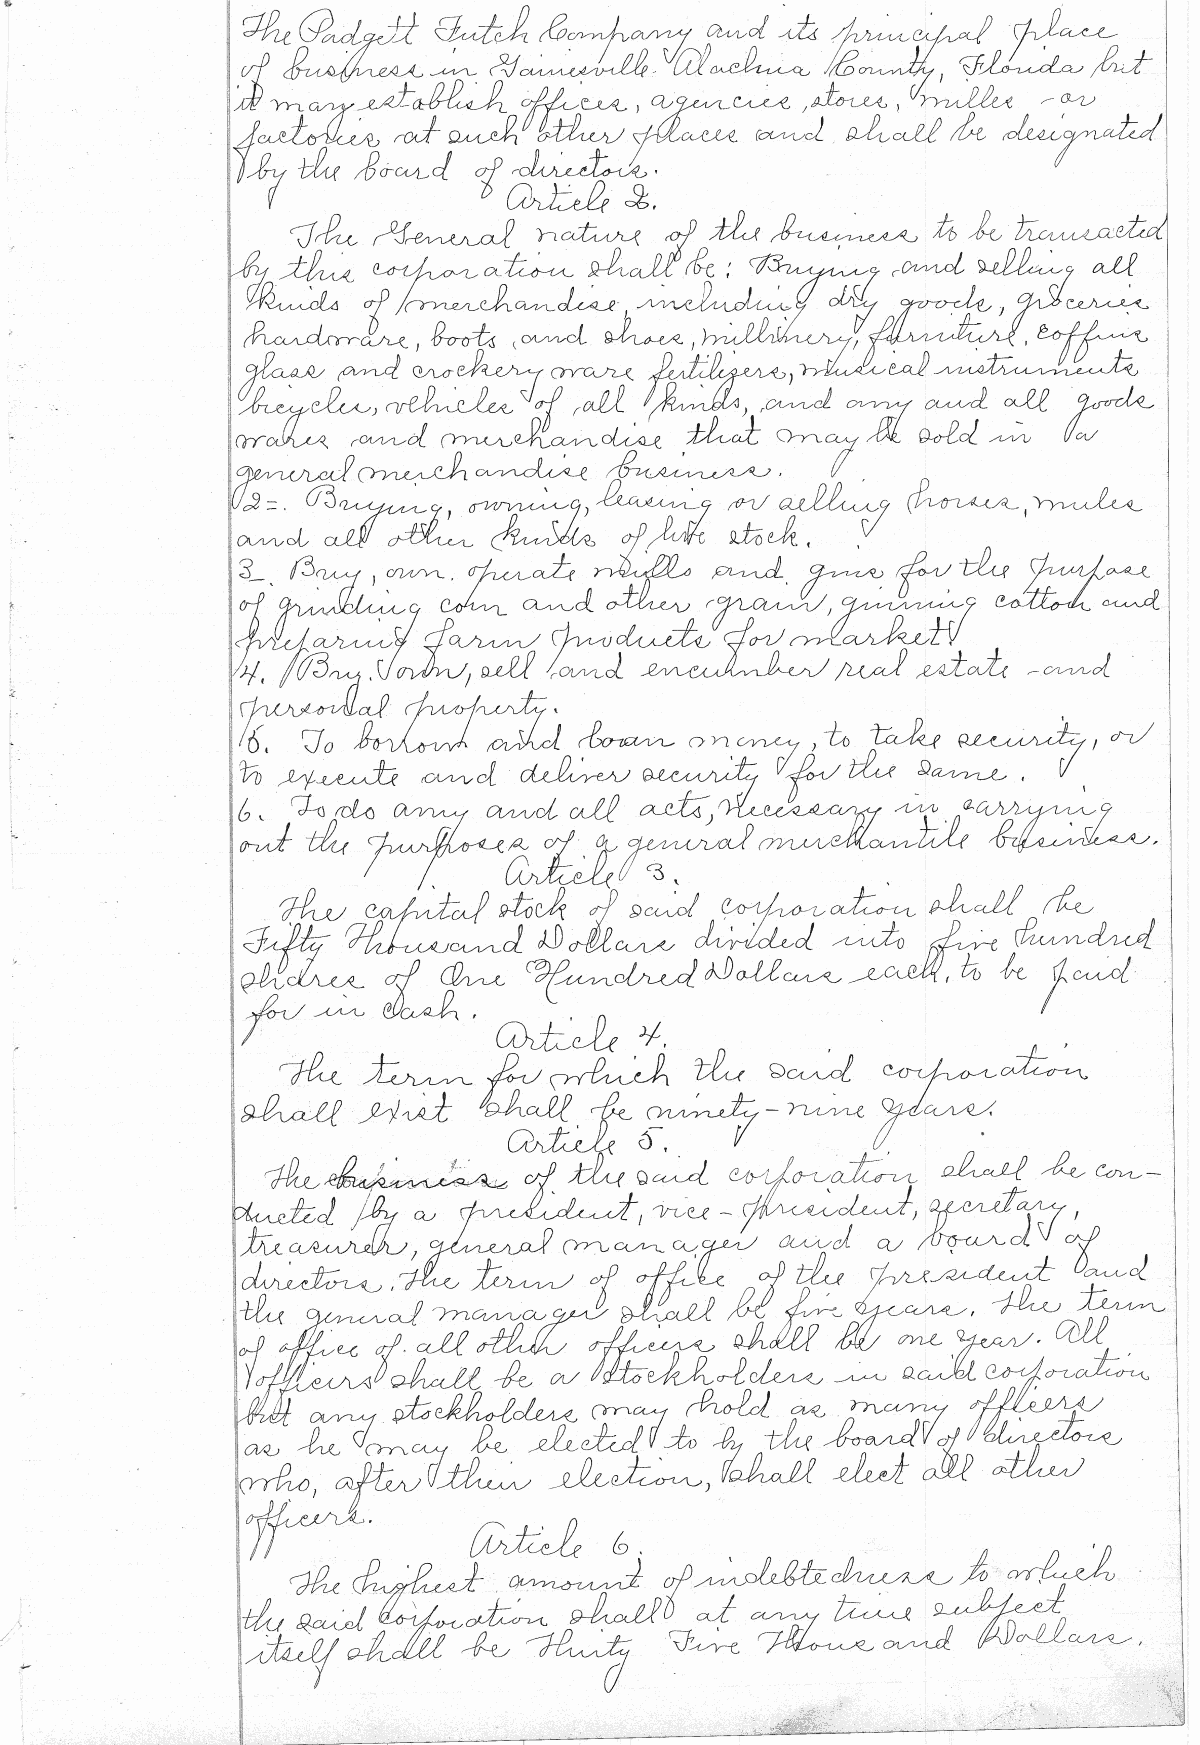 The Padgett Futch Company and its principal place
of business in Gainesville Alachua County, Florida but
it may establish offices, agencies, stores, milles or
factories at such other places and shall be designated
by the board of directors.
Article 2.
The General nature of the business to be transacted
by this corporation shall be: Buying and selling all
kinds of merchandise, including dry goods, groceries
hardware, boots and shoes, millinery, furniture, coffins
glass and crockery ware fertilizers, musical instruments
bicycles, vehicles of all kinds, and any and all goods
wares and merchandise that may be sold in a
general merchandise business.
2=. Buying, owning, leasing or selling horses, mules
and all other kinds of live stock.
3. Buy, own. operate mills and gins for the purpose
of grinding corn and other grain, ginning cotton and
preparing farm products for market.
4. Buy. own, sell and encumber real estate and
personal property.
5. To borrow and loan money, to take security, or
to execute and deliver security for the same.
6. To do any and all acts, necessary in carrying
out the purposes of a general merchantile business.
Article 3.
The capital stock of said corporation shall be
Fifty Thousand Dollars divided into five hundred
shares of One Hundred Dollars each, to be paid
for in cash.
Article 4.
The term for which the said corporation
shall exist shall be ninety-nine years.
Article 5.
The business of the said corporation shall be con-
ducted by a president, vice-president, secretary,
treasurer, general manager and a board of
directors. The term of office of the president and
the general manager shall be five years. The term
of office of all other officers shall be one year. All
officers shall be a stockholders in said corporation
but any stockholders may hold as many officers
as he may be elected to by the board of directors
who, after their election, shall elect all other
officers.
Article 6.
The highest amount of indebtedness to which
the said corporation shall at any time subject
itself shall be Thirty Five Thousand Dollars.